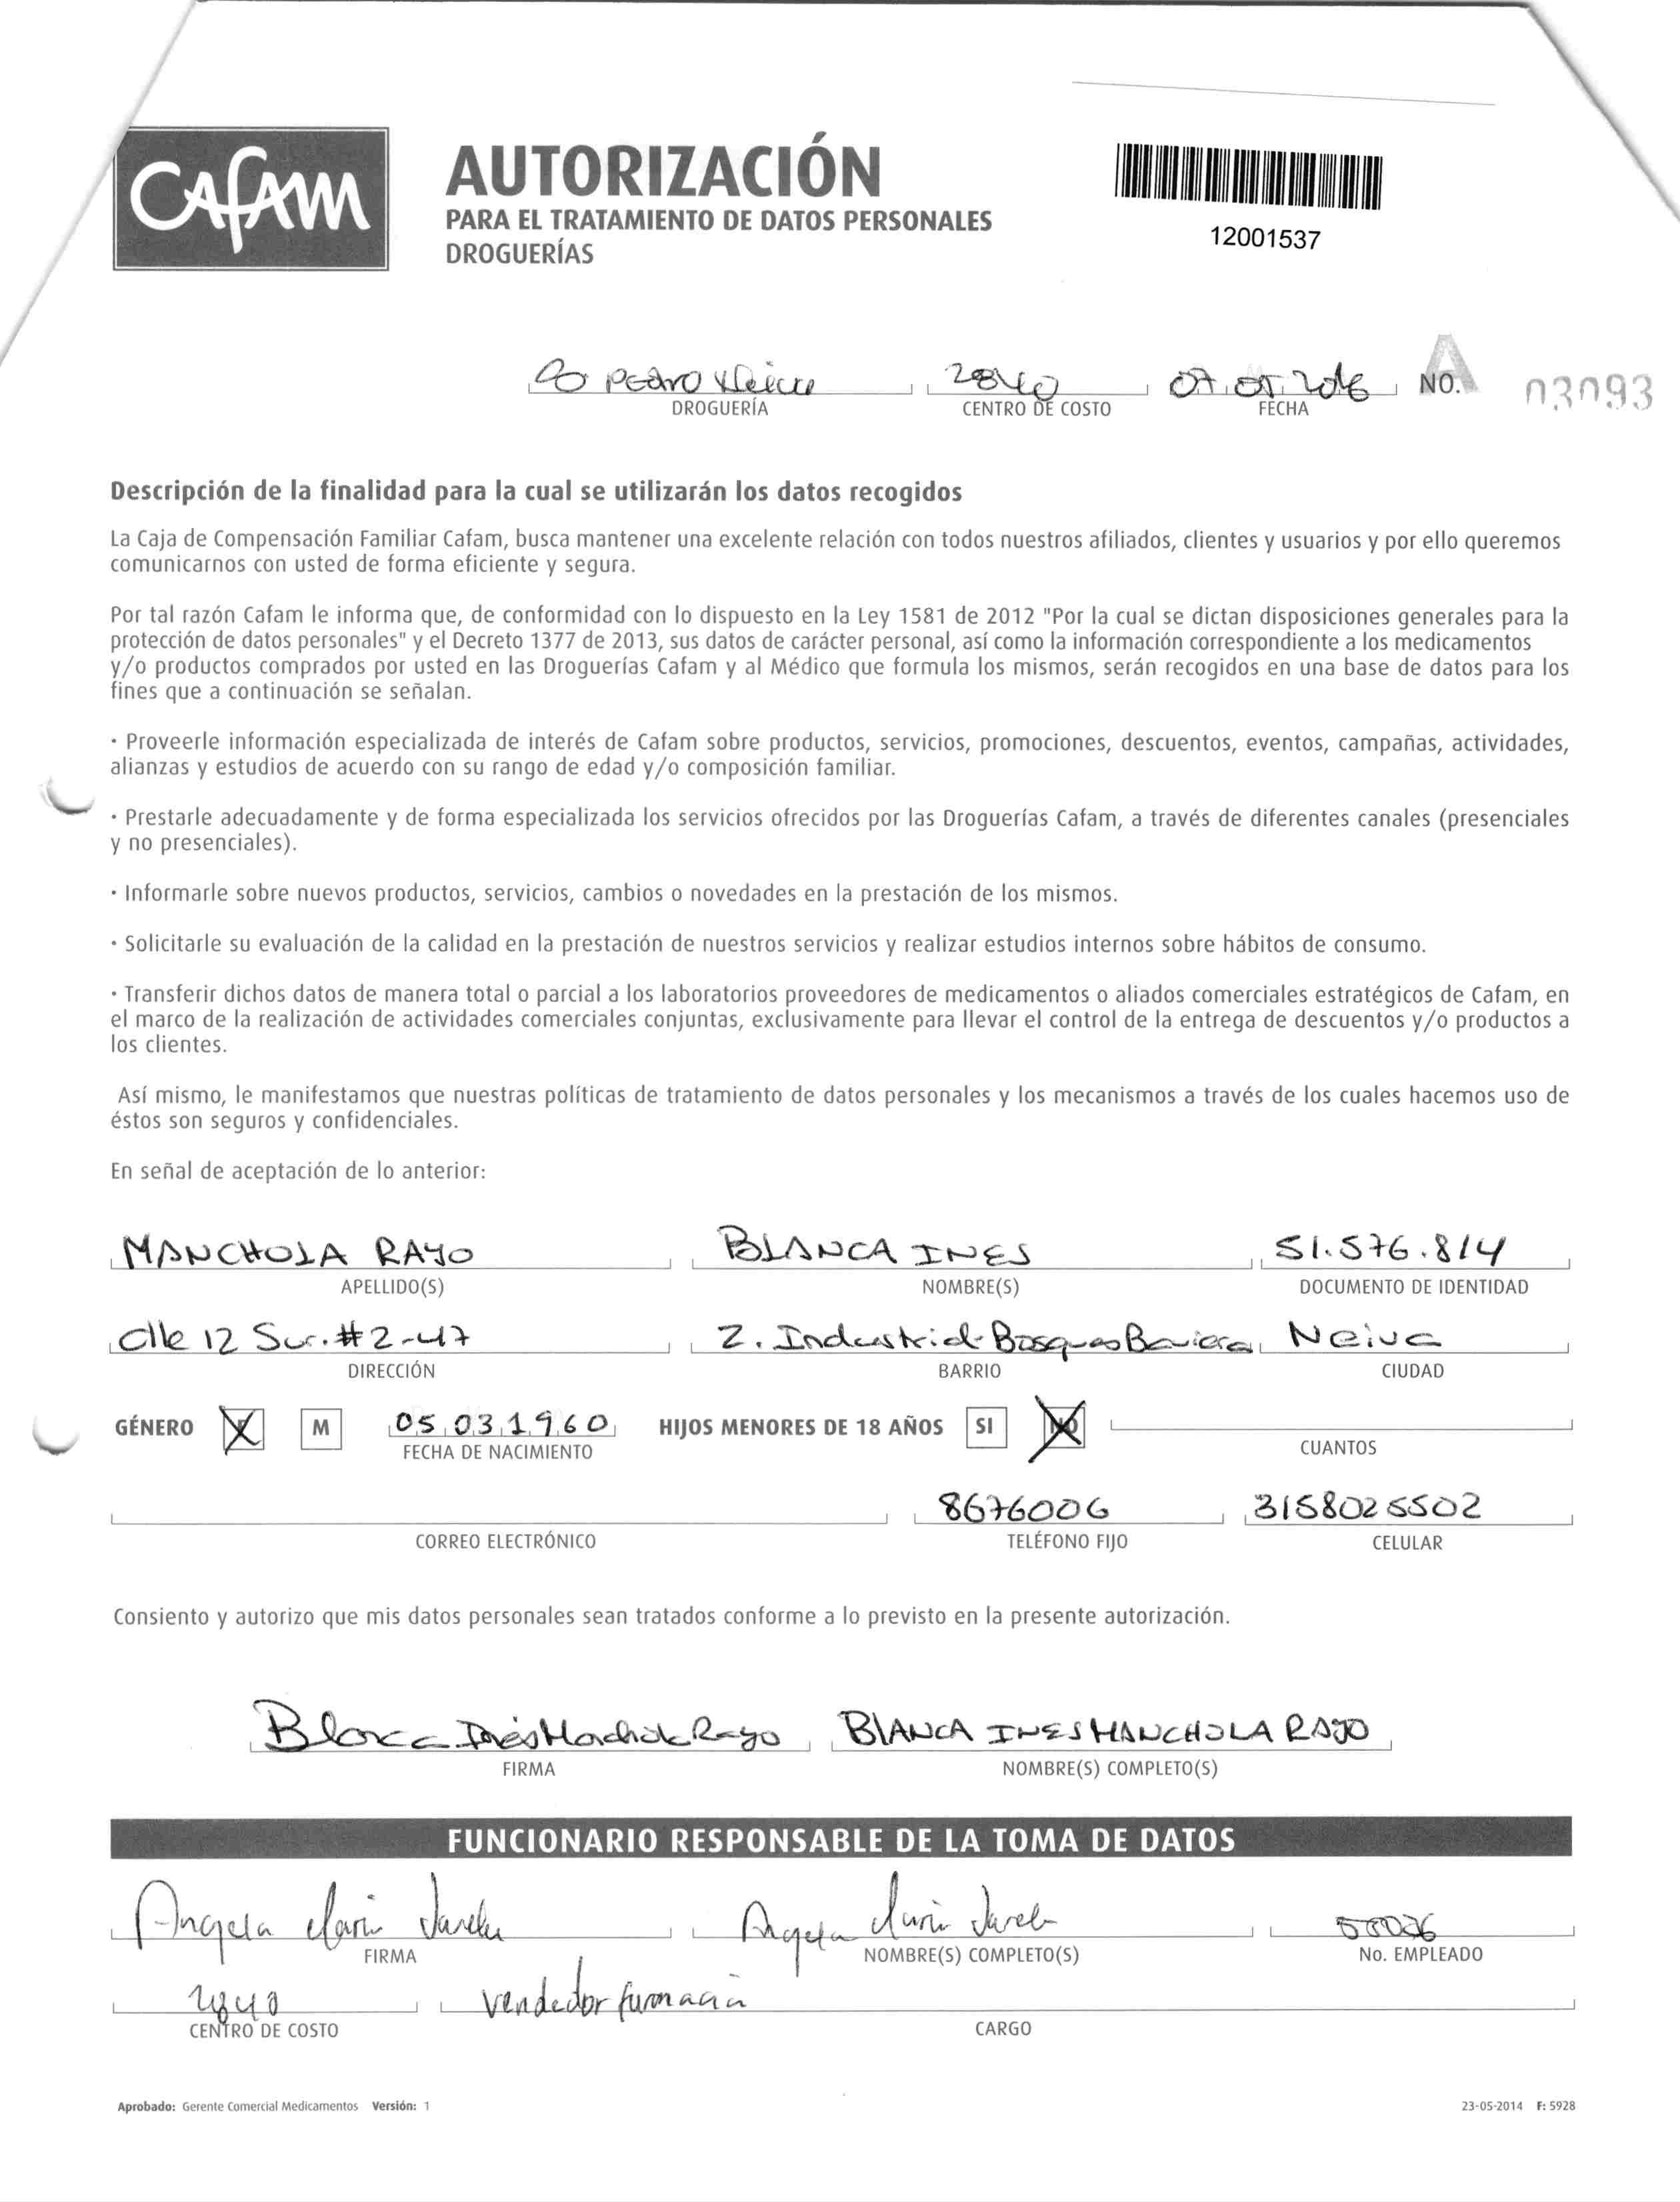 Cafam
AUTORIZACIÓN
PARA EL TRATAMIENTO DE DATOS PERSONALES
DROGUERÍAS
12001537
PEDRO 2840 07.05.2016 A NO. 03093
DROGUERÍA CENTRO DE COSTO FECHA
Descripción de la finalidad para la cual se utilizarán los datos recogidos
La Caja de Compensación Familiar Cafam, busca mantener una excelente relación con todos nuestros afiliados, clientes y usuarios y por ello queremos
comunicarnos con usted de forma eficiente y segura.
Por tal razón Cafam le informa que, de conformidad con lo dispuesto en la Ley 1581 de 2012 "Por la cual se dictan disposiciones generales para la
protección de datos personales" y el Decreto 1377 de 2013, sus datos de carácter personal, así como la información correspondiente a los medicamentos
y/o productos comprados por usted en las Droguerías Cafam y al Médico que formula los mismos, serán recogidos en una base de datos para los
fines que a continuación se señalan.
· Proveerle información especializada de interés de Cafam sobre productos, servicios, promociones, descuentos, eventos, campañas, actividades,
alianzas y estudios de acuerdo con su rango de edad y/o composición familiar.
· Prestarle adecuadamente y de forma especializada los servicios ofrecidos por las Droguerías Cafam, a través de diferentes canales (presenciales
y no presenciales).
· Informarle sobre nuevos productos, servicios, cambios o novedades en la prestación de los mismos.
· Solicitarle su evaluación de la calidad en la prestación de nuestros servicios y realizar estudios internos sobre hábitos de consumo.
· Transferir dichos datos de manera total o parcial a los laboratorios proveedores de medicamentos o aliados comerciales estratégicos de Cafam, en
el marco de la realización de actividades comerciales conjuntas, exclusivamente para llevar el control de la entrega de descuentos y/o productos a
los clientes.
Así mismo, le manifestamos que nuestras políticas de tratamiento de datos personales y los mecanismos a través de los cuales hacemos uso de
éstos son seguros y confidenciales.
En señal de aceptación de lo anterior:
MANCHOLA RAYO BLANCA INES 51.576.814
APELLIDO(S) NOMBRE(S) DOCUMENTO DE IDENTIDAD
Clle 12 Sur. #2-47 Z. Industrial Bosques Baviera Neiva
DIRECCIÓN BARRIO CIUDAD
GÉNERO M 05.03.1960 HIJOS MENORES DE 18 AÑOS SI NO
FECHA DE NACIMIENTO CUANTOS
8676006 3158025502
CORREO ELECTRÓNICO TELÉFONO FIJO CELULAR
Consiento y autorizo que mis datos personales sean tratados conforme a lo previsto en la presente autorización.
Blanca Inés Manchola Rayo BLANCA INES MANCHOLA RAYO
FIRMA NOMBRE(S) COMPLETO(S)
FUNCIONARIO RESPONSABLE DE LA TOMA DE DATOS
Angela Maria Angela Maria
FIRMA NOMBRE(S) COMPLETO(S) No. EMPLEADO
2840 vendedor farmacia
CENTRO DE COSTO CARGO
Aprobado: Gerente Comercial Medicamentos Versión: 1 23-05-2014 F: 5928